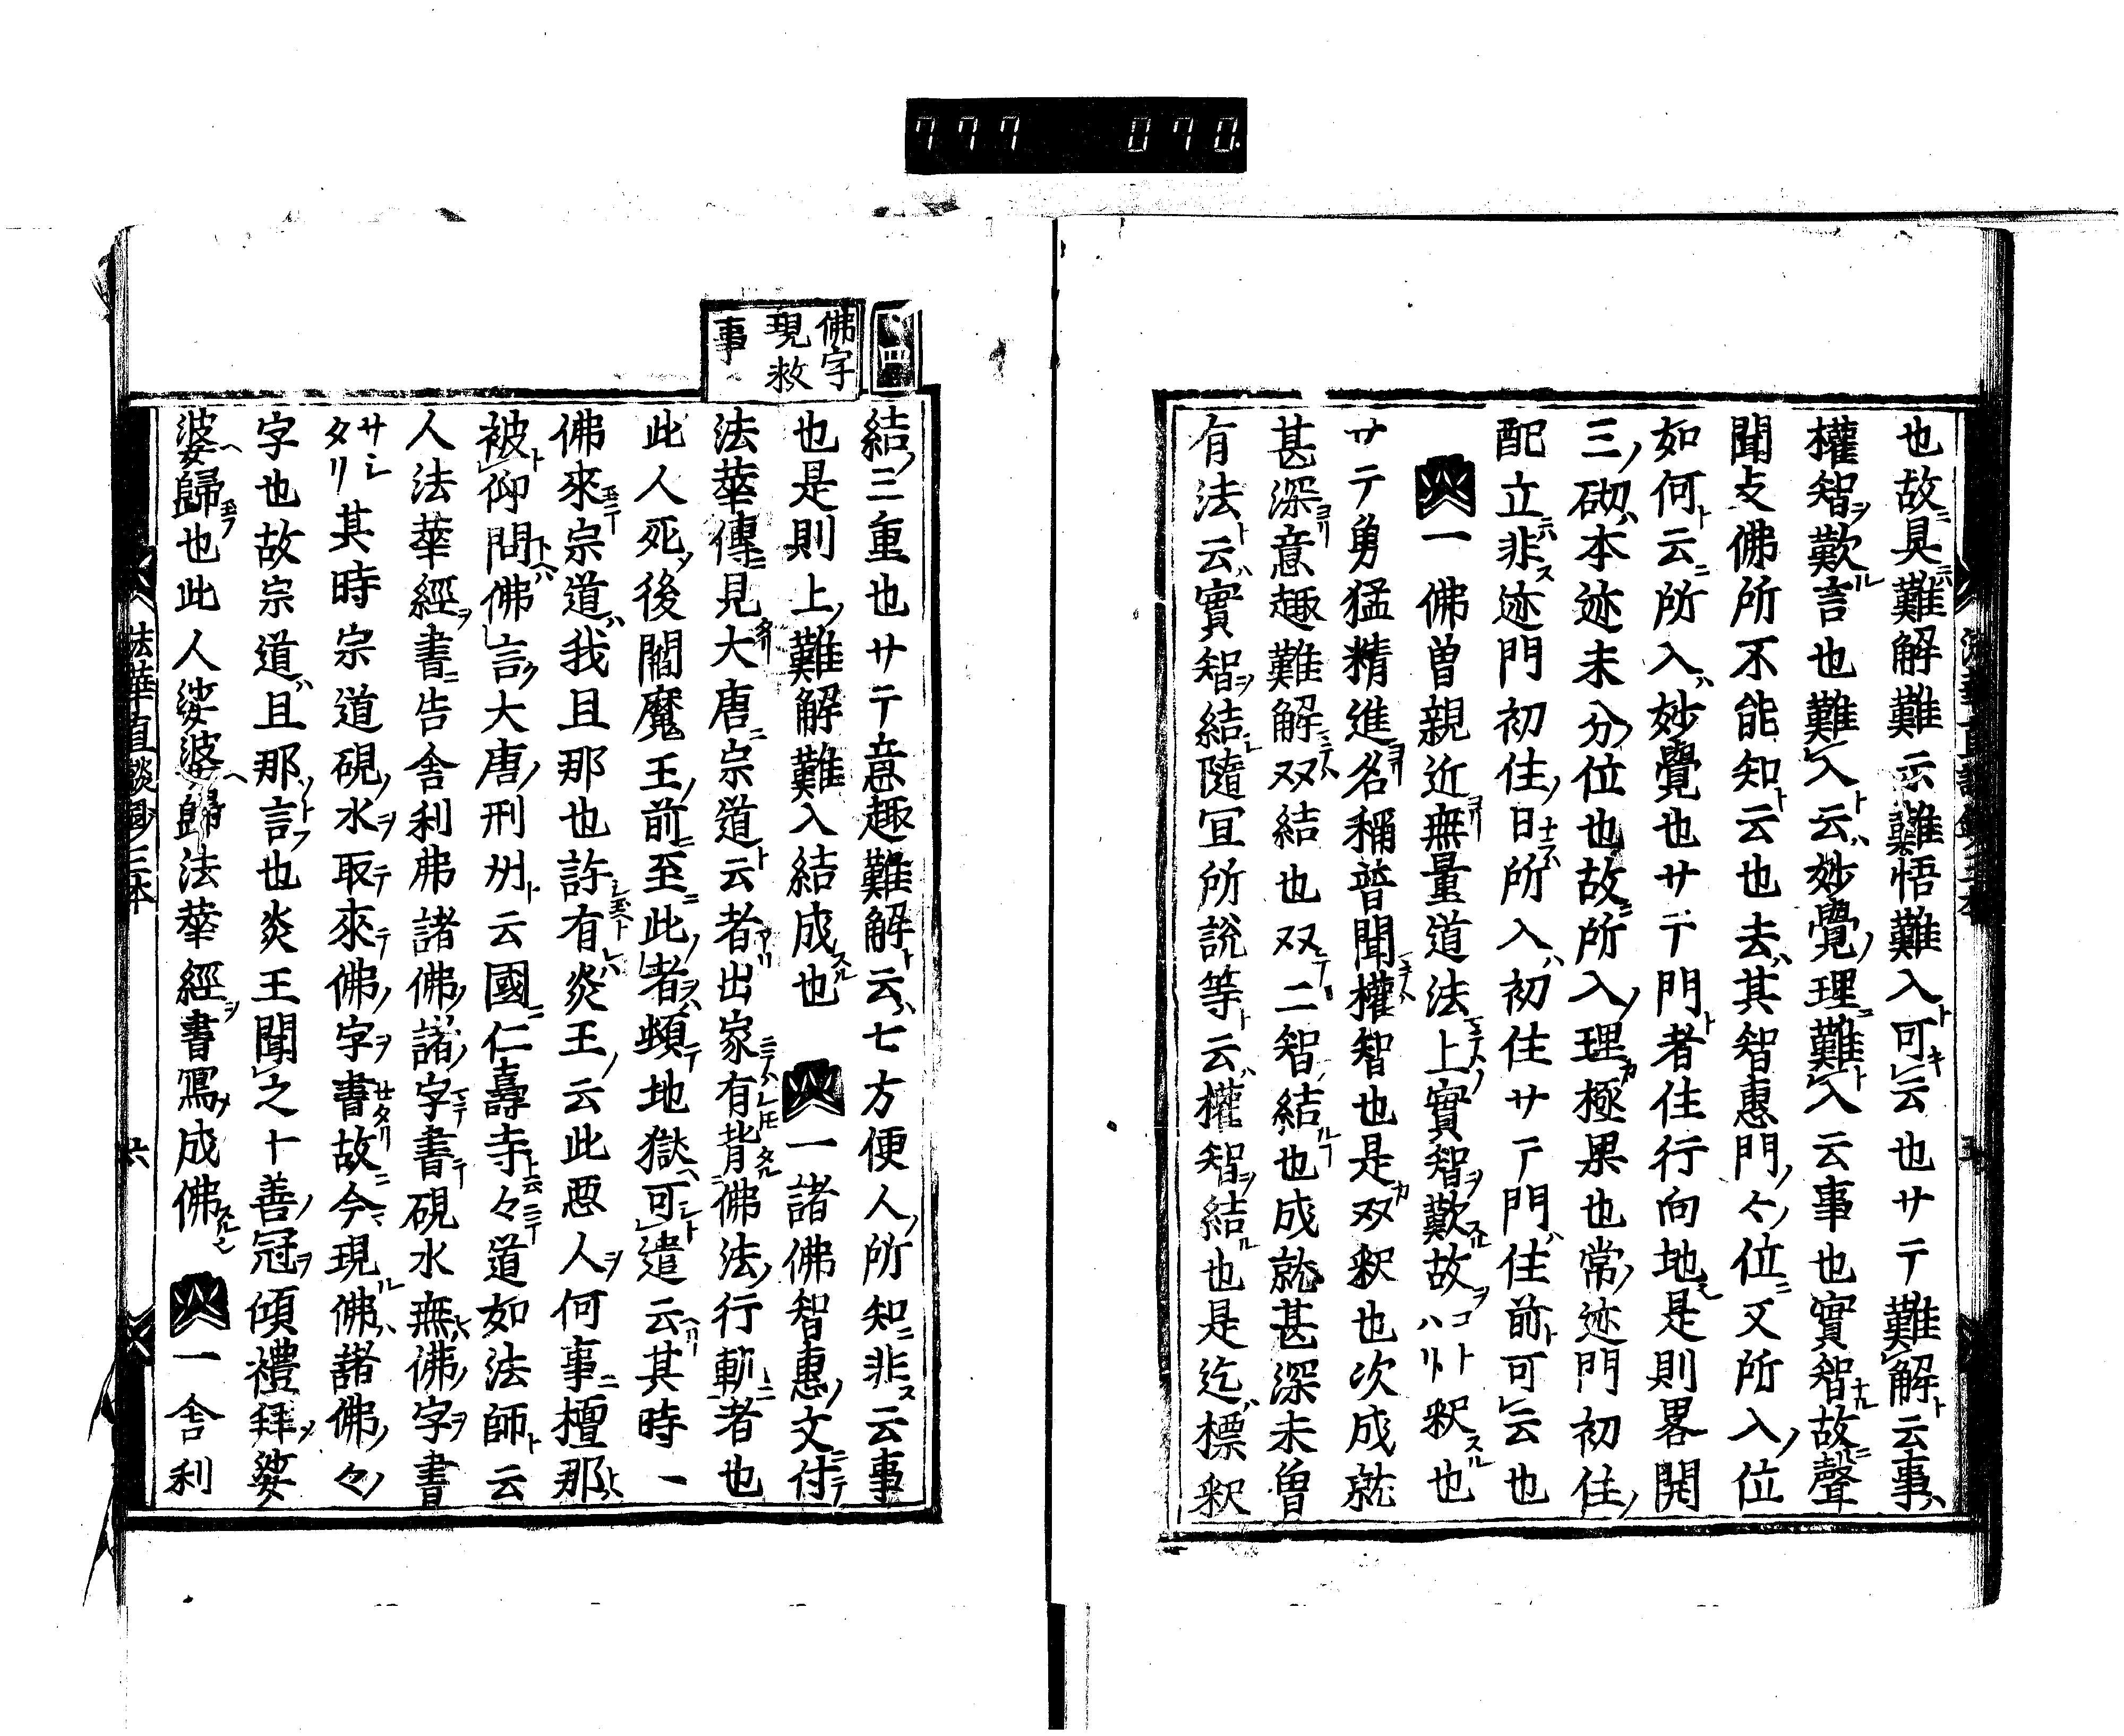 777 070
也故ニ具ニハ難解難示難悟難入ト可キ云也サテ難解ト云事ハ
權智ヲ歎ル言也難入トハ云ハ妙覺ノ理ニ難入ト云事也實智ナル故ニ聲
聞支佛所不能知ト云也去ハ其智惠門ノ今ノ位ニ又所入ノ位
如何ト云ニ所入ハ妙覺也サテ門ト者住行向地也是則畧開
三ノ砌ハ本迹未分ノ位也故ニ所入ノ理カ極果也常ノ迹門初住ノ
配立ニハ非ス迹門初住ノ日ナラハ所入ハ初住サテ門ハ住前ト可云也
一佛曾親近ヨリ無量道法上マテハノ實智ヲ歎スル故ヲコトハリ釈スル也
サテ勇猛精進ヨリ名稱普聞マテハ權智也是カ双釈也次成就
甚深ヨリ意趣難解マテハ双結也双テニ二智結ルフ也成就甚深未曾
有法トハ云實智ヲ結シ隨宜所說等トハ云權智ヲ結ル也是迄ハ標釈
四
佛字
現救
事
結ノ三重也サテ意趣難解トハ云七方便人ノ所知ニ非スト云事
也是則上ノ難解難入結成スル也 一諸佛智惠ノ文ニ付テ
法華傳ニ見タリ大唐ニ宗道ト云者アリ出家ニテハアレトモ有背タル佛法ニ行ノ斬ニ者也
此人死ノ後閻魔王ノ前ニ至ニ此ノ者ヲハ頓テ地獄ヘ可シト遣云ヘリ其時一
佛來玉テ宗道ハ我且那也許シ玉ヘト有ハ炎王ノ云此惡人ヲ何事ニ檀那トハ
被仰問トハ佛ノ言ク大唐ノ刑州ト云國ニ仁壽寺ト云ニテ々道如法師ト云
人法華經ヲ書ニ告舎利弗諸佛ノ諸ノ字マテ書テ硯水無シ佛ノ字ヲ書
サレタリ其時宗道硯ノ水ヲ取テ來テ佛ノ字ヲ書セタリ故ニ今ニ現ル佛ハ諸佛ノ々ノ
字也故宗道ハ且那ノト言フ也炎王聞之十善ノ冠ヲ傾禮拜ノ娑
婆ヘ歸玉フ也此人娑婆ヘ歸法華經ヲ書寫メ成佛スル也 一舎利
法華直談鈔三本 六